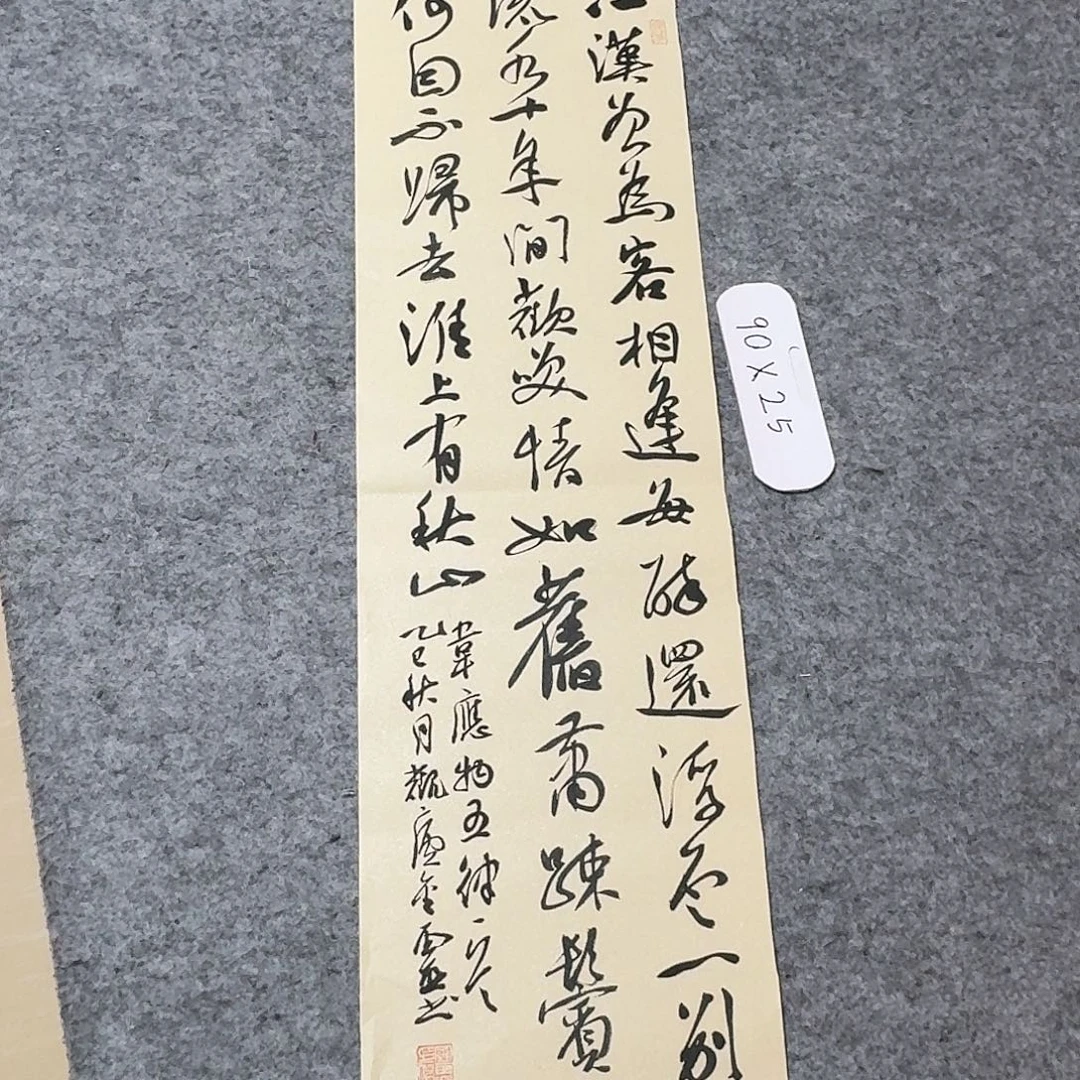 江漢曾為客相逢每醉還浮雲一別
流水十年間歡笑情如舊蕭踈鬢
何因不歸去淮上有秋山
韋應物五律一首
乙巳秋月
90X25